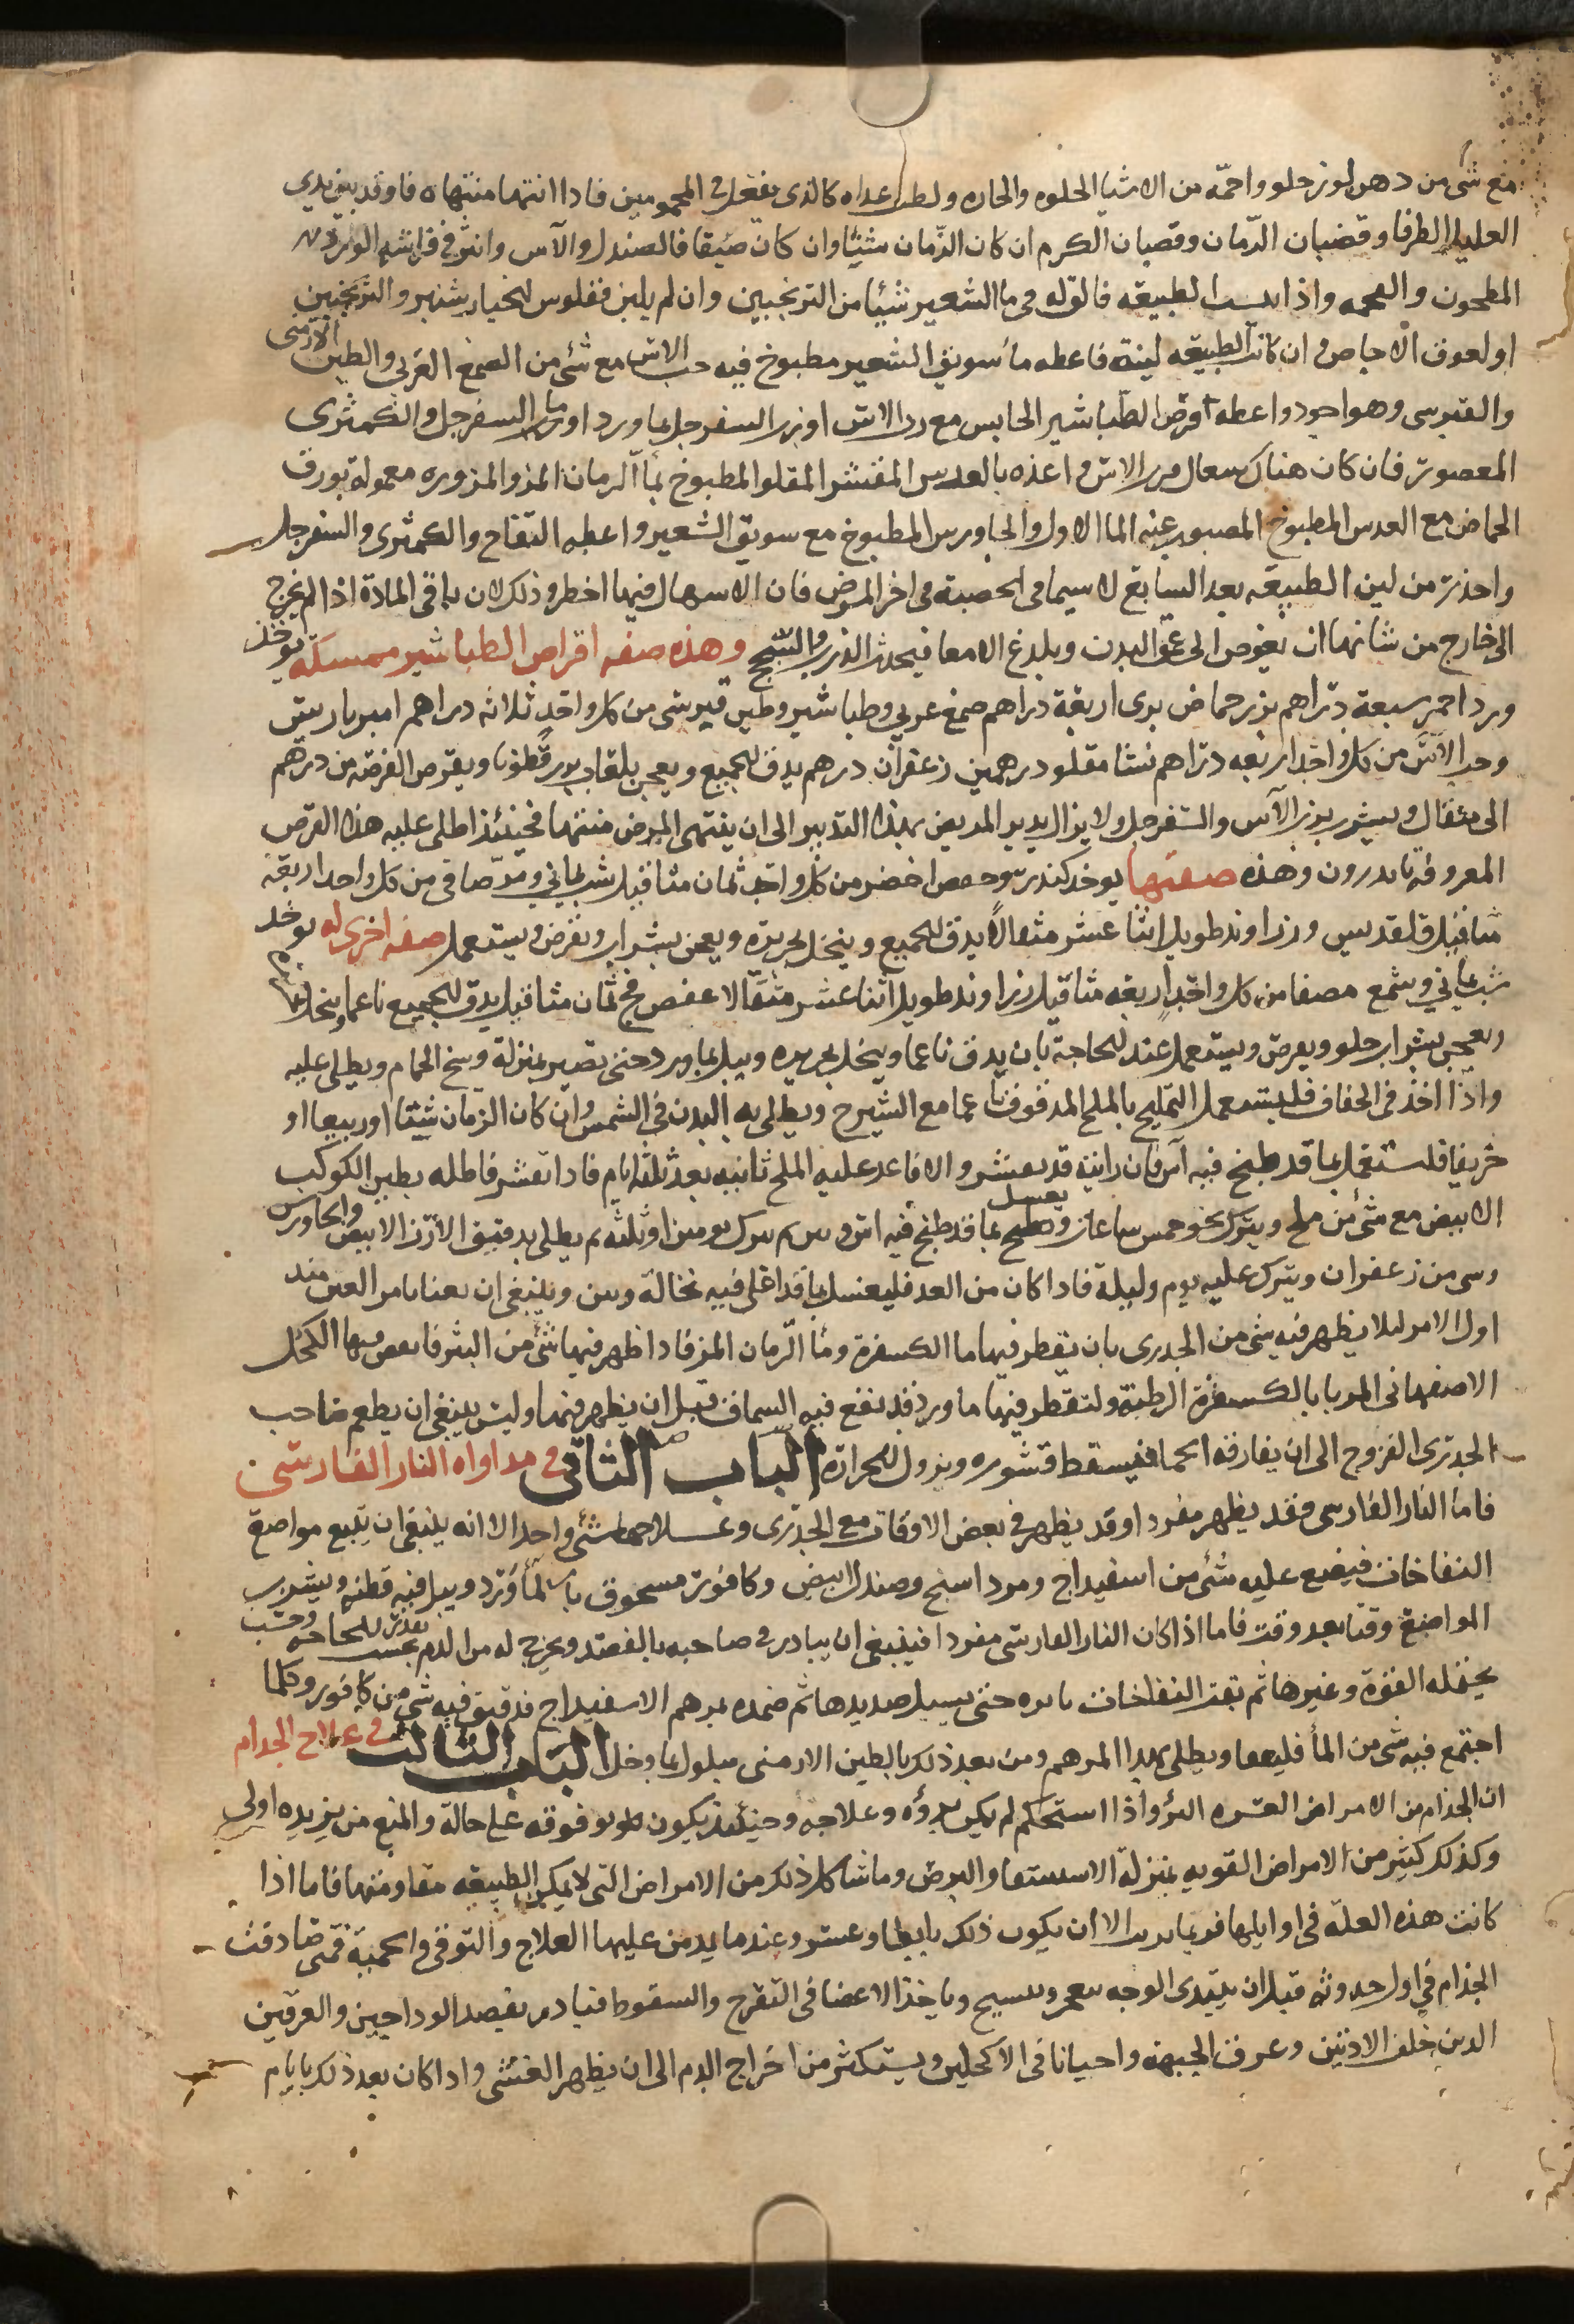 مع شى من دهن لوز حلو واحمّه من الاشيا الحلوه والحاره ولطف غداه كالذى تفعل فى المحمومين فاذا انتها منتهاه فاوقد بين يدى
العليل الطرفا وقضبان الرّمان وقضبان الكرم ان كان الزّمان شتيًا وان كان صيفا فالصندل والآس وانثر فى فراشه الورد
المطحون واذا الطبيعه فالق له فى ما الشعير شيئا من الترنجبين وان لم يلين ففلوس الخيارشنبر والترنجبين
او لعوق الاجاص وان كانت الطبيعه لينة فاعطه ما سويق الشعير مطبوخ فيه حب الاس مع شى من الصمغ العربى والطين الارمنى
والقبرسى وهو اجود واعطه اقرص الطباشير الحابس مع رب الاس او رب السفرجل بما ورد او ما السفرجل والكمثرى
المعصور فان كان هناك سعال فرب الاس واغذه بالعدس المقشر المقلو المطبوخ بما الرمان المز والمزوره معموله بورق
الحماض مع العدس المطبوخ المصبوب عنه الما الاول والجاورس المطبوخ مع سويق الشعير واعطه التفاح والكمثرى والسفرجل
واحذر من لين الطبيعه بعد السابع لا سيما فى الحصبة فى اخر المرض فان الاسهال فيها اخطر وذلك لان باقى المادة اذا لم يخرج
الى خارج من شانها ان تغوص الى عمق البدن ويلدغ الامعا فيحدث الذرب والسّحج وهذه صفه اقراص الطباشير ممسكة يوخذ
ورد احمر سبعة دراهم بزر حماض برى اربعة دراهم صمغ عربي وطباشير وطين قبرسى من كل واحدٍ ثلاثه دراهم امبرباريس
وحب الآس من كل واحد اربعه دراهم نشا مقلو درهمين زعفران درهم يدق الجميع ويعجن بلعاب بزر قطونا ويقرص القرصه من درهم
الى مثقال ويشرب برب الآس والسفرجل ولا يزال يدبر المريض بهذا التدبير الى ان ينتهى المرض منتهاه فحينئذ اطلى عليه هذا القرص
المعروفه باندرون وهذه صفتها يوخذ كندر وعفص اخضر من كل واحد ثمان مثاقيل شب يماني ومرّ صافى من كل واحد اربعة
مثاقيل قلقديس وزراوند طويل اثنا عشر مثقالاً يدق الجميع وينخل بحريره ويعجن بشراب ويقرص ويستعمل صفه اخرى له يوخذ
شب يماني وشمع مصفا من كل واحدٍ اربعه مثاقيل زراوند طويل اثنا عشر مثقالا عفص فج ثمان مثاقيل يدق الجميع ناعما وينخل
ويعجن بشراب حلو ويقرص ويستعمل عند الحاجة بان يدق ناعما وينخل بحريره ويبل بما ورد حتى تصير بمنزلة وسخ الحمام ويطلى عليه
واذا اخذ فى الجفاف فليستعمل التمليح بالملح المدقوق ناعما مع الشيرج ويطلى به البدن فى الشمس وان كان الزمان شتيا او ربيعا او
خريفا فلتستعمل بما قد طبخ فيه آس فان رايته قد تعشر والا فاعد عليه الملح ثانيه بعد ثلثه ايام فاذا تقشر فاطله بطين الكوكب
الابيض مع شى من ملح ويترك نحو خمس ساعات ويغسل بما قد طبخ فيه اس ثم يترك يومين او ثلثه ثم يطلى بدقيق الارز الابيض والجاورس
وشى من زعفران ويترك عليه يوم وليلة فاذا كان من الغد فليغسل بما قد اغلى فيه نخالة وتبن وينبغى ان يعنا بامر العين منذ
اول الامر ليلا يظهر فيه شى من الجدرى بان يقطر فيها ما الكسفرة وما الرمان المز فاذا ظهر فيها شى من البثر فانعم فيها الكحل
الاصفهانى المربا بالكسفرة الرطبة ولتقطر فيها ما ورد قد نقع فيه السماق قبل ان يظهر فيها وليس ينبغى ان يطعم صاحب
الجدرى الفروج الى ان يفارقه الحما فيسقط قشوره وتزول الحرارة الباب الثانى فى مداواه النار الفارسى
فاما النار الفارسى فقد يظهر مفردا وقد يظهر فى بعض الاوقات مع الجدرى وعلاجهما شى واحد الا انه ينبغى ان يتبع مواضع
النفاخات فيضع عليه شى من اسفيداج ومرداسنج وصندل ابيض وكافور مسحوق بالما ورد ويبل فيه قطنه ويشرب
المواضع وقتا بعد وقت فاما اذا كان النار الفارسى مفردا فينبغى ان يبادر فى صاحبه بالفصد ويخرج له من الدم بقدر الحاجه وحسب
يحتمله القوة وغيرها ثم تفقد النفاخات بابره حتى يسيل صديدها ثم ضمده بمرهم الاسفيداج قد قتق فيه شى من كافور وكلما
اجتمع فيه شى من الما فليفقا ويطلى بهذا المرهم ومن بعد ذلك بالطين الارمنى مبلول بما وخل الباب الثالث فى علاج الجذام
ان الجذام من الامراض العسره البرؤ واذا استحكم لم يكن برؤه وعلاجه وحينئذ يكون وقوفه على حالة والمنع من تزيده اولى
وكذلك كثير من الامراض القويه بمنزلة الاستسقا والبرص وما شاكل ذلك من الامراض التى لا يمكن الطبيعه مقاومتها فاما اذا
كانت هذه العلة فى اوايلها فربما برت الا ان يكون ذلك بابطا وعسر وعندما يدمن عليها العلاج والتوقى والحمية فمتى صادفت
الجذام فى اول حدوثه قبل ان يبتدى الوجه وياخذ الاعضا فى التقرح والسقوط فبادر بفصد الوداجين والعرقين
الذين خلف الاذنين وعرق الجبهة واحيانا فى الاكحلين ويستكثر من اخراج الدم الى ان يظهر الغشى واذا كان بعد ذلك بايام